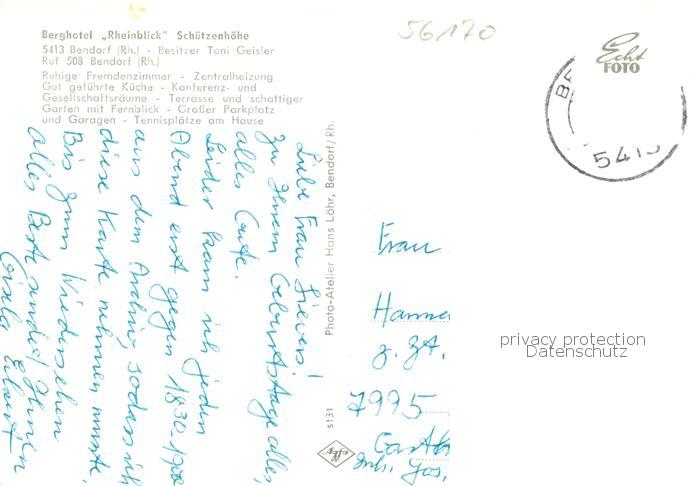 Berghotel „Rheinblick" Schützenhöhe
5413 Bendorf (Rh.) - Besitzer Toni Geisler
Ruf 508 Bendorf (Rh.)
Ruhige Fremdenzimmer - Zentralheizung
Gut geführte Küche - Konferenz- und
Gesellschaftsräume - Terrasse und schattiger
Garten mit Fernblick - Großer Parkplatz
und Garagen - Tennisplätze am Hause
56170
Echt
FOTO
BE
5413
Liebe Frau Sievers!
Zu Ihrem Geburtstage alles,
alles Gute.
Leider kam ich jeden
Abend erst gegen 1830-1900
aus dem Archiv, sodass ich
diese Karte nehmen musste.
Bis zum Wiedersehen
alles Beste sendet Ihnen
Gisela
Photo-Atelier Hans Löhr, Bendorf/Rh.
s131
Agfa
Frau
Hanna
z. Zt.
7995
Inh. Jos.
privacy protection
Datenschutz